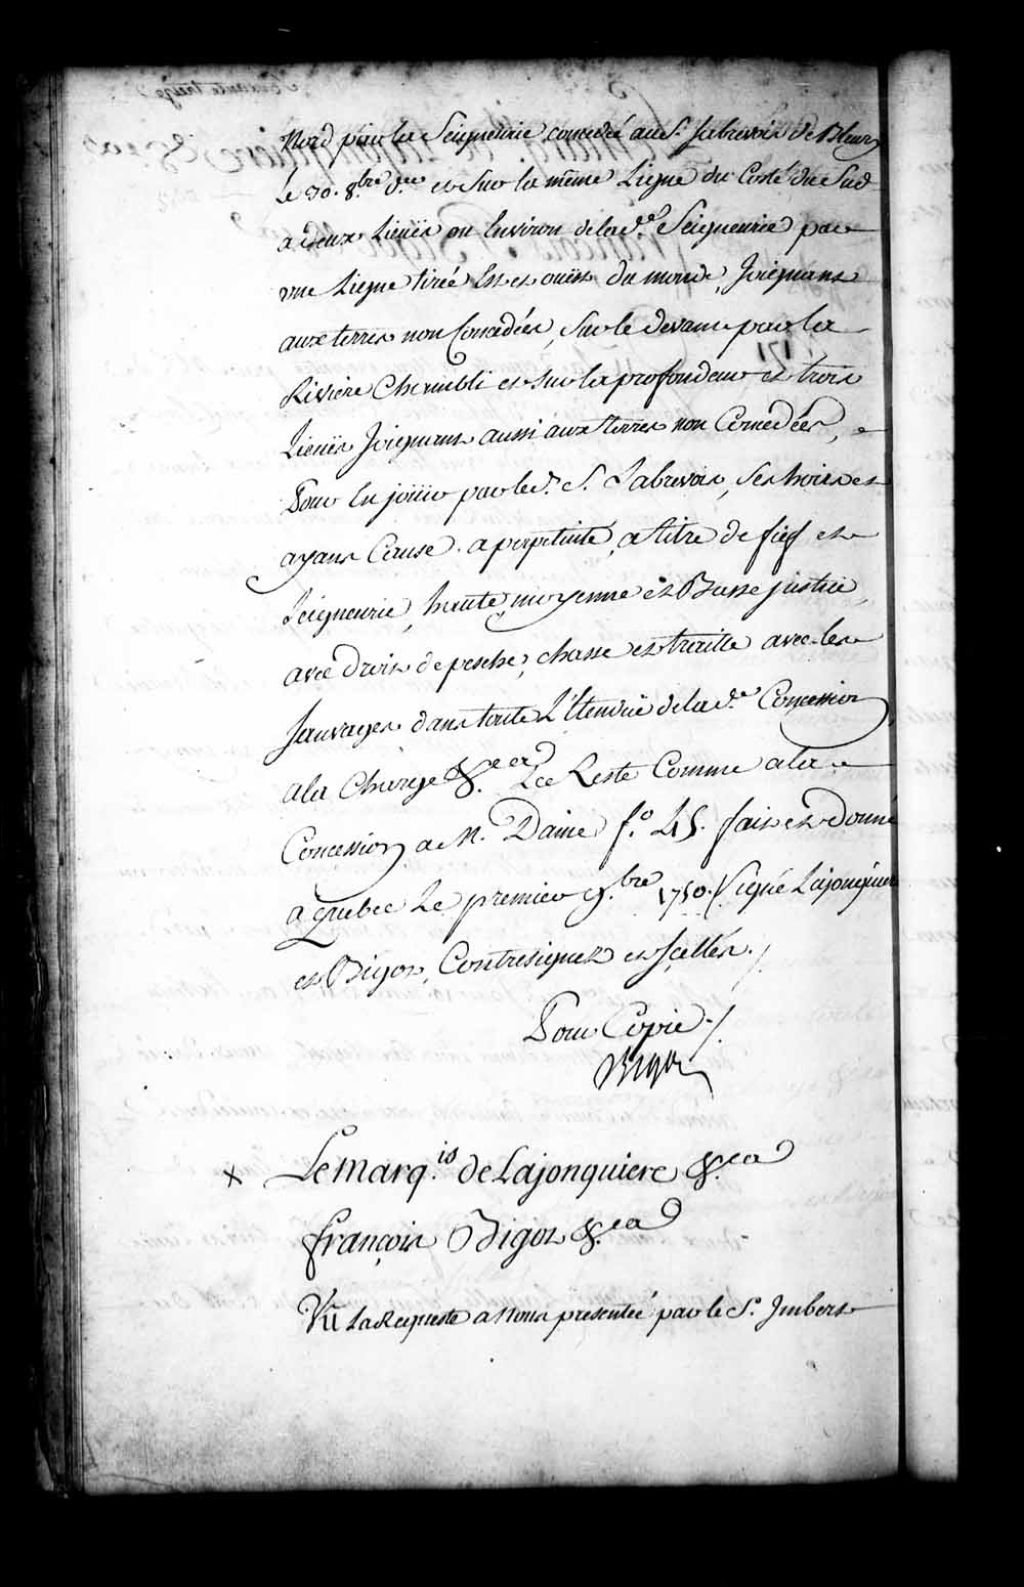 Nord par la Seigneurie concedée au S. Sabrevois de Bleury
Le 30. 8.bre d.er et sur la même Ligne du Costé du Sud
a deux Lieües ou Environ de la d.e Seigneurie par
une Ligne tirée Est et ouest du monde, Joignant
aux terres non Concedées, Sur le devant par la
Riviere Chambli et sur la profondeur et trois
Lieües Joignant aussi aux terres non Concedées,
Pour En joüir par led. S. Sabrevois, Ses hoirs et
ayans Cause a perpetuité, a titre de fief et
Seigneurie, haute, moyenne et Basse justice,
avec droit de pesche, chasse et traitte avec les
Sauvages dans toute L'Etendüe de la d.e Concession
a la Charge &.ca Le Reste Comme a la
Concession a M. Daine f.o 45. fait et Donné
a Quebec Le premier 9.bre 1750. Signé Lajonquiere
et Bigot, Contresignez et Scellés./
Pour Copie./.
Bigot
x Le marq.is de Lajonquiere &.ca
François Bigot &.ca
Vû La Requeste a Nous presentée par le S. Imbert